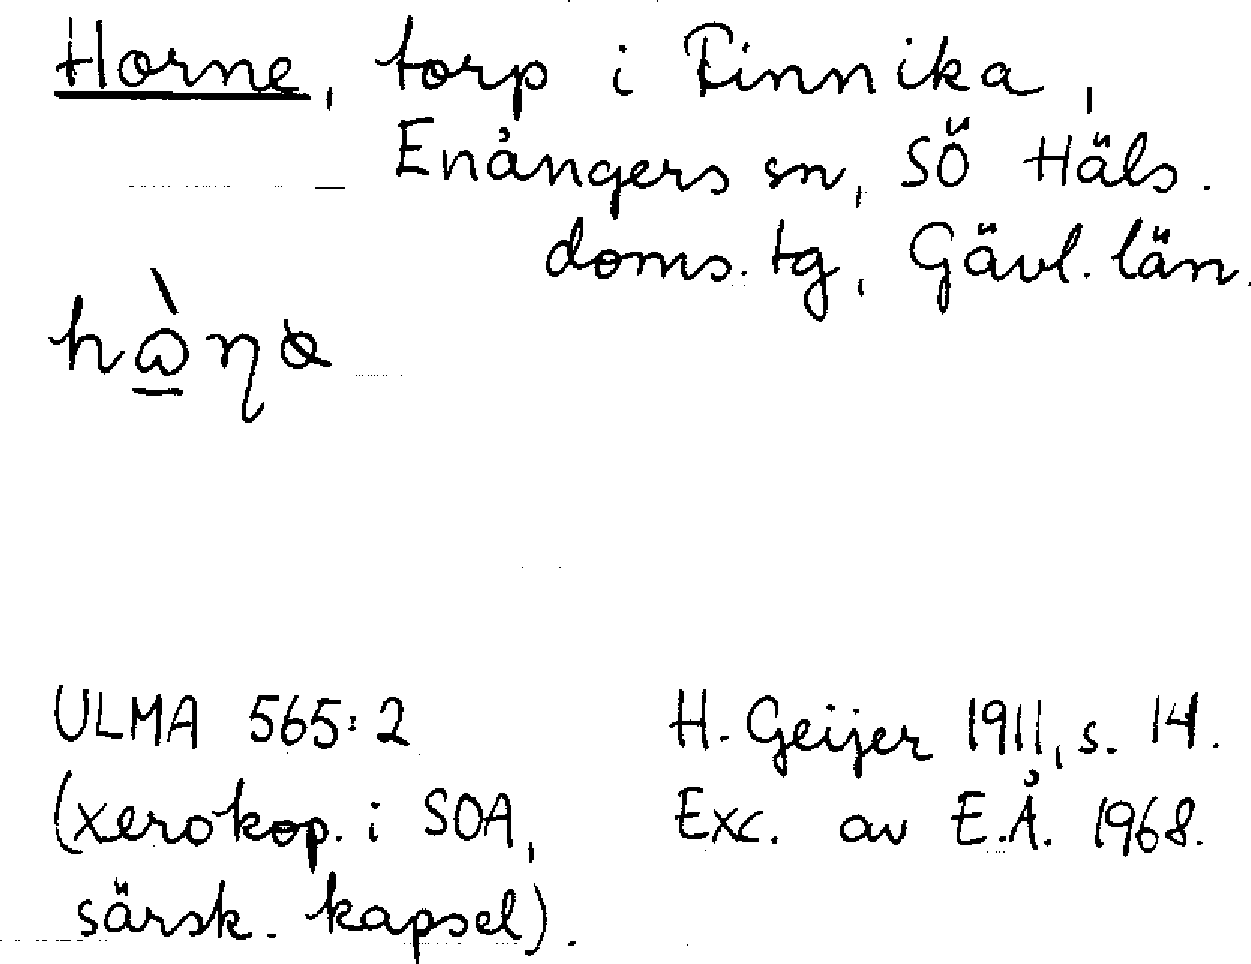 Horne, torp i Finnika,
Enångers sn, SÖ Häls.
doms. tg, Gävl. län.
ULMA 565:2
(xerokop. i SOA,
särsk. kapsel).
H. Geijer 1911, s. 14.
Exc. av E.Å. 1968.